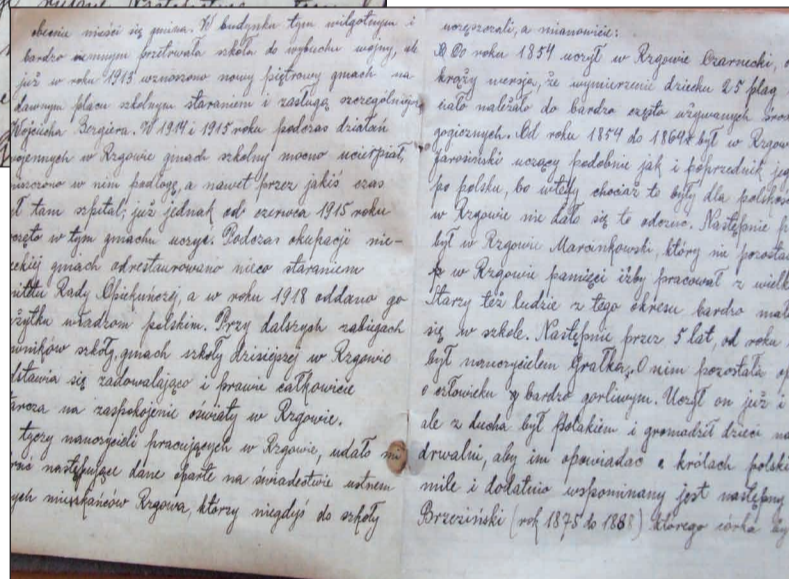 obecnie mieści się gmina. W budynku tym wilgotnym i
bardzo ciemnym przetrwała szkoła do wybuchu wojny, ale
już w roku 1913 wznoszono nowy piętrowy gmach na
dawnym placu szkolnym staraniem i zasługą szczególniejszą
Wojciecha Bergiera. W 1914 i 1915 roku podczas działań
wojennych w Rzgowie gmach szkolny mocno ucierpiał,
niszczono w nim podłogę, a nawet przez jakiś czas
był tam szpital; już jednak od czerwca 1915 roku
zaczęto w tym gmachu uczyć. Podczas okupacji nie-
mieckiej gmach odrestaurowano nieco staraniem
Rady Opiekuńczej, a w roku 1918 oddano go
użytku władzom polskim. Przy dalszych zabiegach
szkoły, gmach szkoły dzisiejszej w Rzgowie
się zadowalająco i prawie całkowicie
na zaspokojenie oświaty w Rzgowie.
tyczy nauczycieli pracujących w Rzgowie, udało mi
następujące dane oparte na świadectwie ustnem
mieszkańców Rzgowa, którzy niegdyś do szkoły
uczęszczali, a mianowicie:
Do roku 1854 uczył w Rzgowie Czarnecki, o
krąży wersja, że wymierzenie dziecku 25 plag
ciało należało do bardzo często używanych środ
gogicznych. Od roku 1854 do 1864r był w Rzgow
Jarosiński uczący podobnie jak i poprzednik jeg
po polsku, bo wtedy chociaż to były dla polskoś
w Rzgowie nie dało się to odczuć. Następnie p
był w Rzgowie Marcinkowski, który nie pozosta
w Rzgowie pamięci iżby pracował z wielk
Starzy też ludzie z tego okresu bardzo mał
się w szkole. Następnie przez 5 lat, od roku
był nauczycielem Grałka. O nim pozostała op
o człowieku bardzo gorliwym. Uczył on już i
ale z ducha był Polakiem i gromadził dzieci na
drwalni, aby im opowiadać o królach polski
mile i dodatnio wspominany jest następny
Brzeziński (rok 1875 do 1888) którego córka